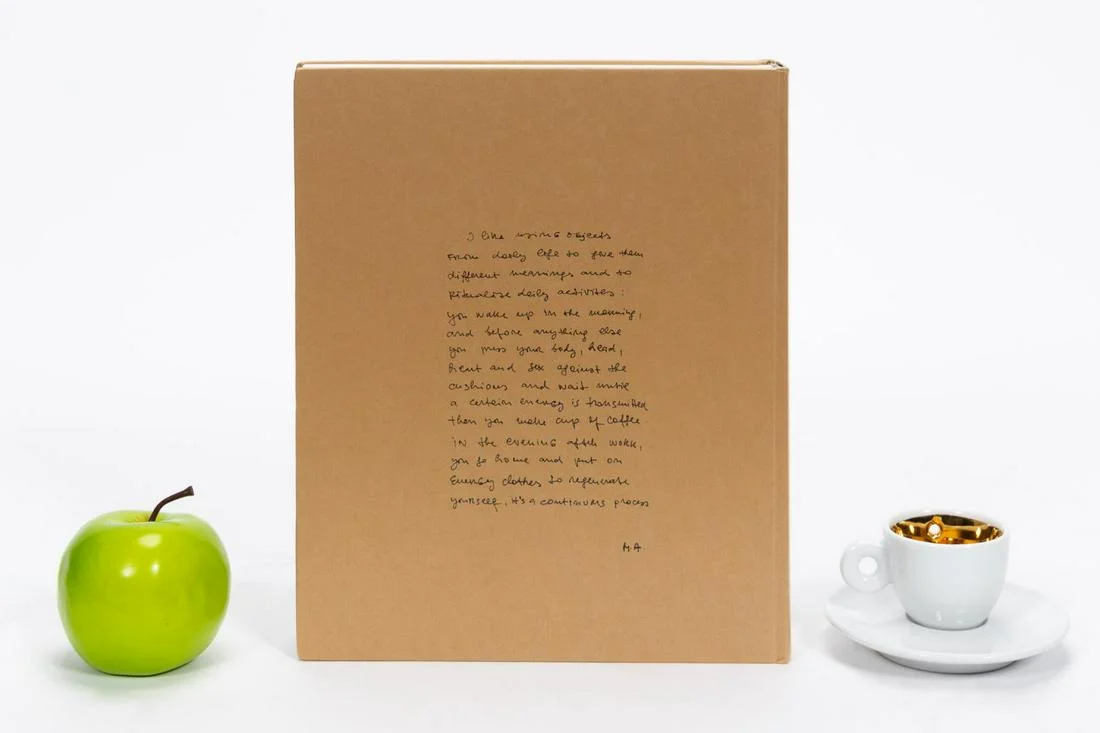 I like using objects
from daily life to give them
different meanings and to
ritualise daily activites:
you wake up in the morning,
and before anything else
you press your body, head,
heart and sex against the
cushions and wait until
a certain energy is transmitted
then you make cup of coffee.
in the evening after work,
you go home and put on
Energy clothes to regenerate
yourself, it's a continuous process
M.A.